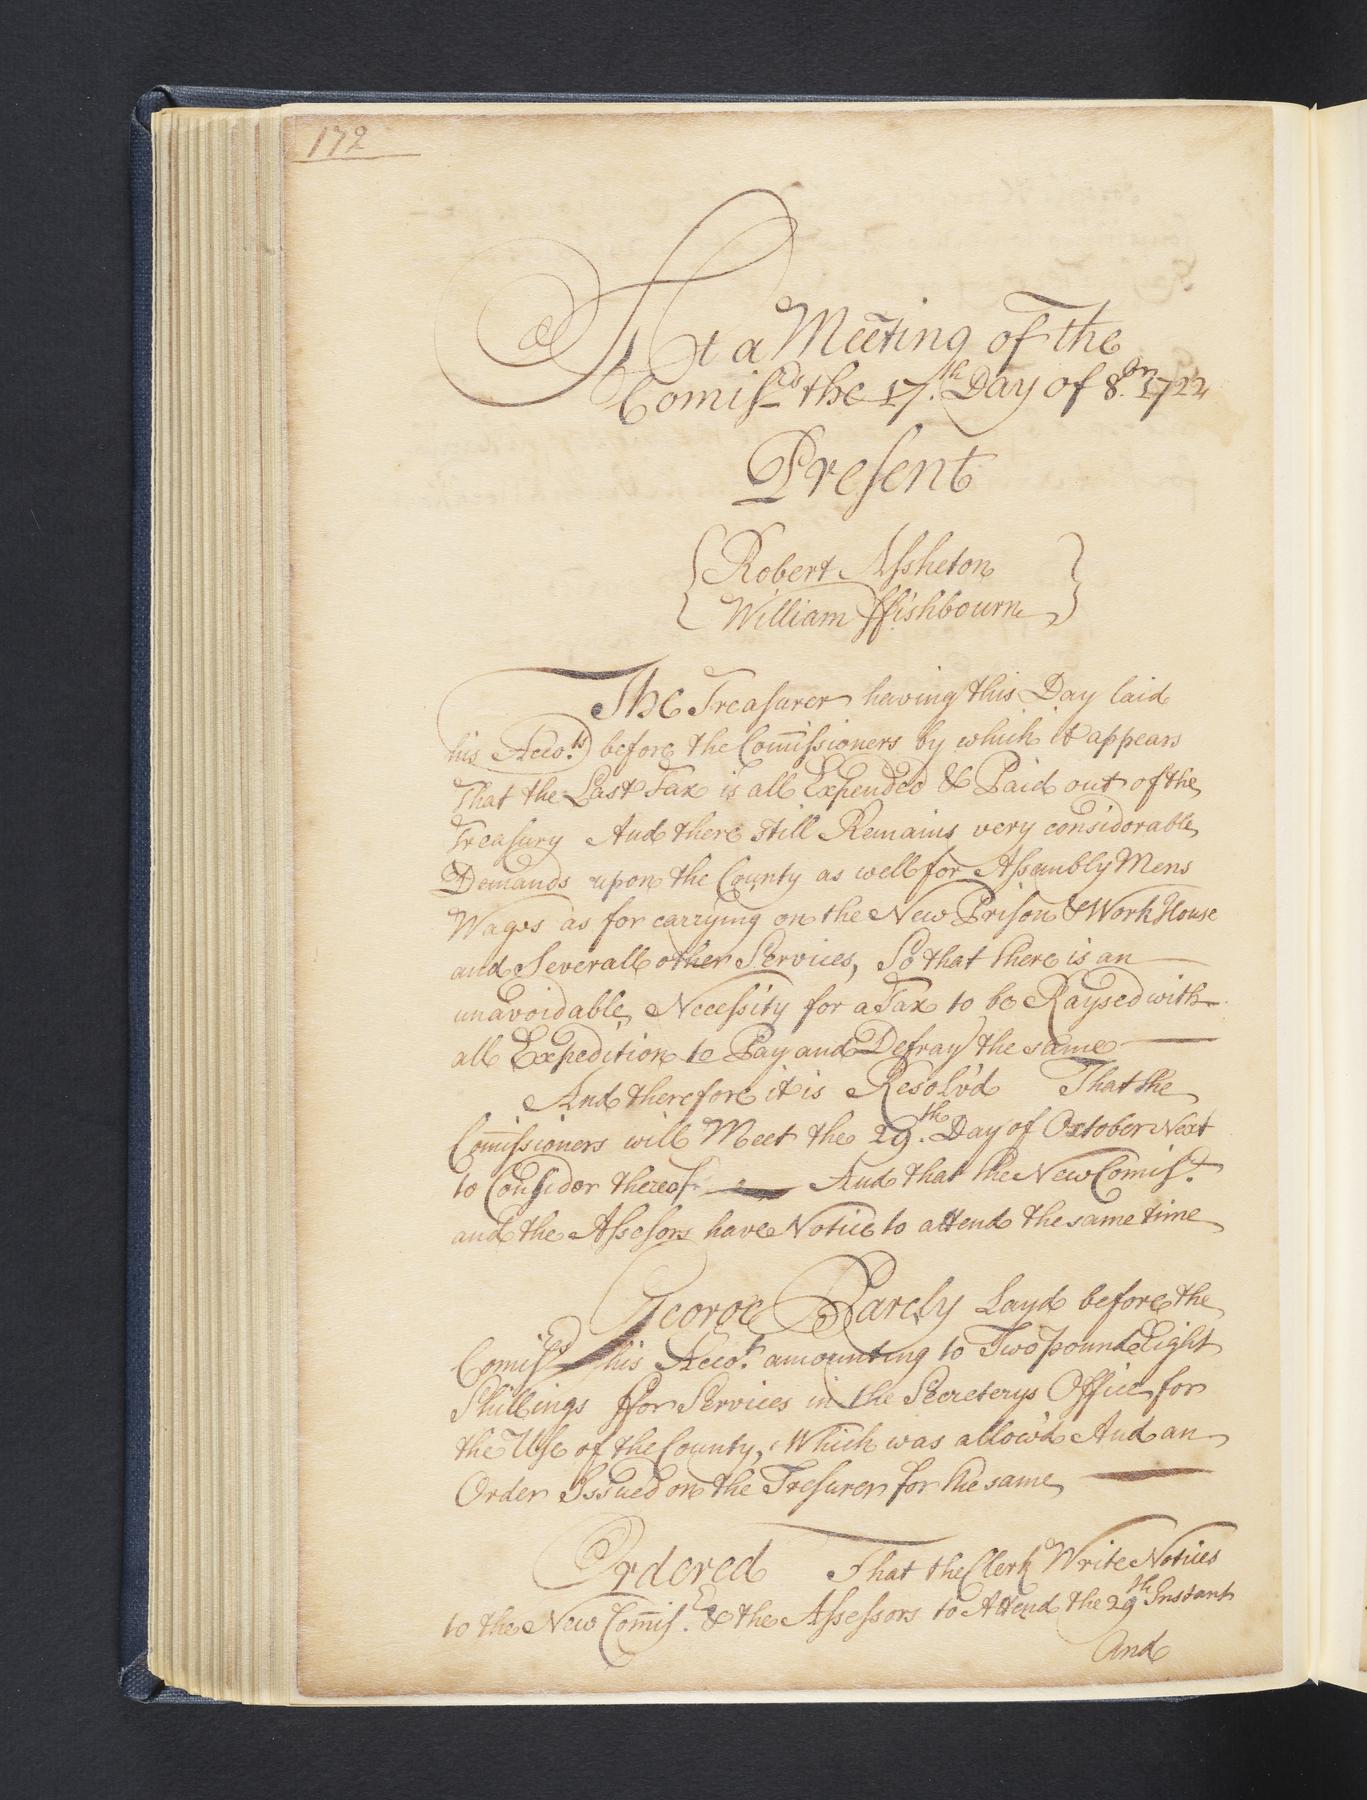 172
At a Meeting of the
Comiſ.rs the 17.th Day of 8.br 1722
Preſent
{Robert Aſsheton
William ffishbourn}
The Treaſurer having this Day laid
his Acco.ts before the Com̄iſsioners by which it appears
That the Last Tax is all Expended & Paid out of the
Treaſury And there still Remains very considerable
Demands upon the County as well for Aſsembly Mens
Wages as for carrying on the New Priſon & Work House
and Severall other Services, So that there is an
unavoidable Neceſsity for a Tax to be Raysed with
all Expedition to Pay and Defray the same
And therefore it is Resolv'd That the
Com̄iſsioners will Meet the 29.th Day of October Next
to Conſider thereof And that the New Comiſ.rs
and the Aſseſors have Notice to attend the same time
George Barcly Layd before the
Comiſ.rs his Acco.t amounting to Two pound Eight
Shillings ffor Services in the Secreterys Office for
the Uſe of the County, Which was allow'd And an
Order Issued on the Treſurer for the same
Ordered That the Clerk Write Notices
to the New Com̄iſ.rs & the Aſseſsors to Attend the 29th Instant
And